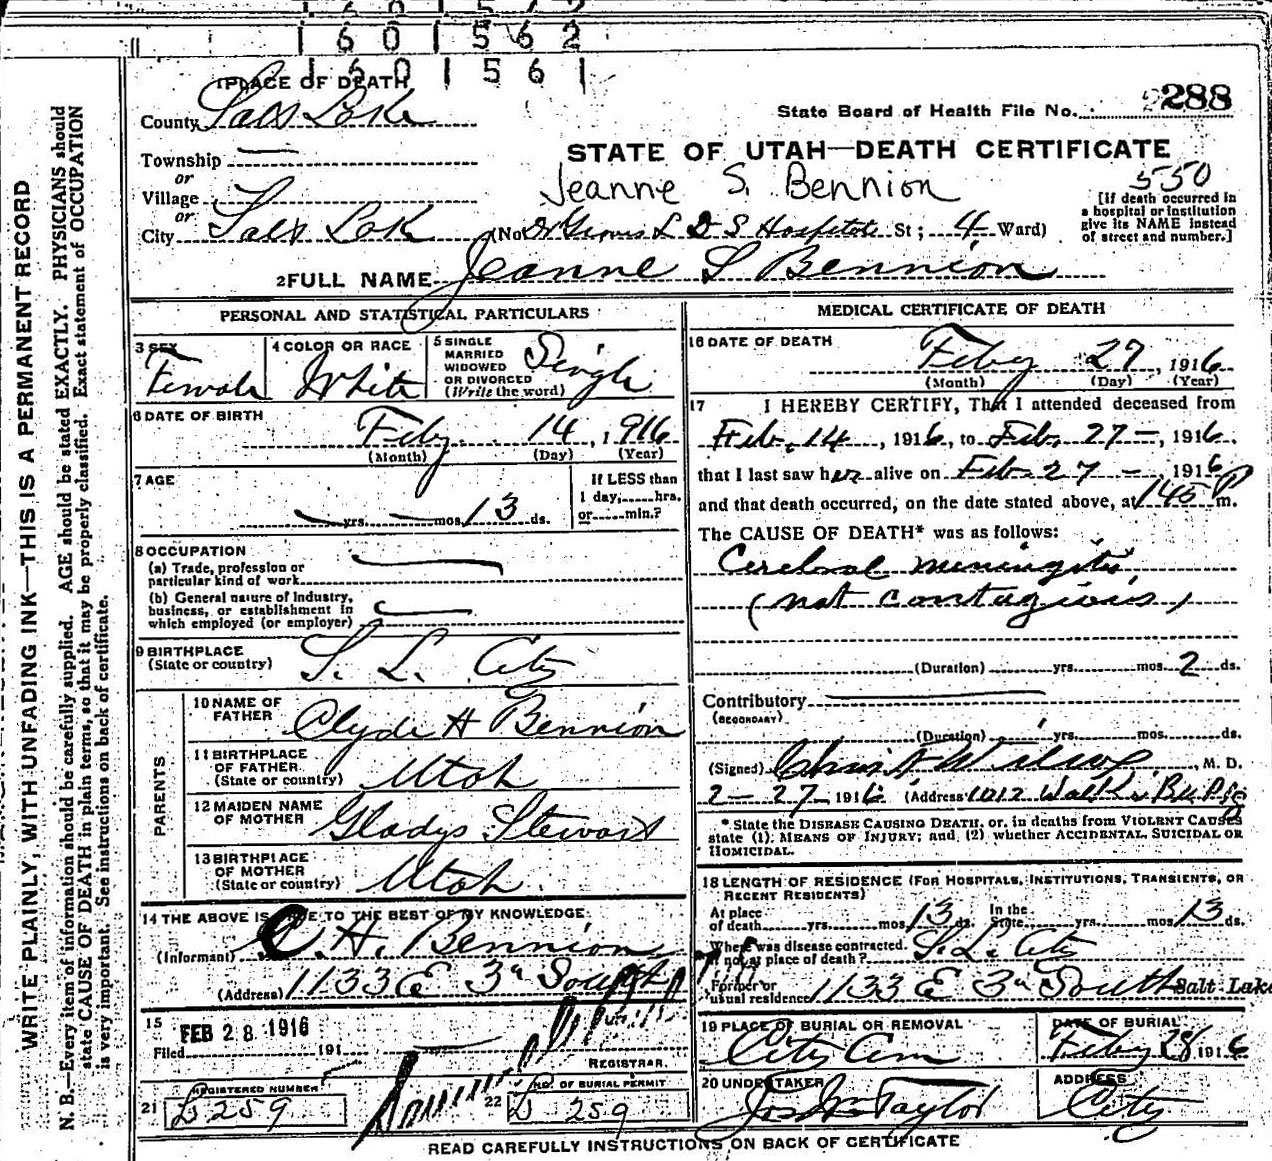 1601562
1601561
1 PLACE OF DEATH
County Salt Lake
State Board of Health File No. 288
STATE OF UTAH—DEATH CERTIFICATE
Township —
or
Village
or
City Salt Lake
Jeanne S. Bennion
550
[If death occurred in
a hospital or institution
give its NAME instead
of street and number.]
(No. Dr Groves L D S Hospital St; 4 Ward)
2 FULL NAME Jeanne S Bennion
PERSONAL AND STATISTICAL PARTICULARS
3 SEX Female
4 COLOR OR RACE White
5 SINGLE
MARRIED
WIDOWED
OR DIVORCED
(Write the word) Single
6 DATE OF BIRTH
Feby 14, 1916
(Month) (Day) (Year)
7 AGE
— yrs. — mos. 13 ds.
If LESS than
1 day, hrs.
or min.?
8 OCCUPATION
(a) Trade, profession or
particular kind of work —
(b) General nature of Industry,
business, or establishment in
which employed (or employer) —
9 BIRTHPLACE
(State or country) S. L. City
PARENTS
10 NAME OF
FATHER Clyde H Bennion
11 BIRTHPLACE
OF FATHER
(State or country) Utah
12 MAIDEN NAME
OF MOTHER Gladys Stewart
13 BIRTHPLACE
OF MOTHER
(State or country) Utah
14 THE ABOVE IS TRUE TO THE BEST OF MY KNOWLEDGE.
(Informant) C. H. Bennion
(Address) 1133 E 3rd South
15 FEB 28 1916
Filed 191
REGISTRAR.
REGISTERED NUMBER
21 D 259
NO. OF BURIAL PERMIT
22 D 259
MEDICAL CERTIFICATE OF DEATH
16 DATE OF DEATH
Feby 27, 1916
(Month) (Day) (Year)
17 I HEREBY CERTIFY, That I attended deceased from
Feb. 14, 1916, to Feb. 27—, 1916,
that I last saw her alive on Feb. 27—, 1916
and that death occurred, on the date stated above, at 1:45 P m.
The CAUSE OF DEATH* was as follows:
Cerebral meningitis
(not contagious)
(Duration) yrs. mos. 2 ds.
Contributory —
(SECONDARY)
(Duration) yrs. mos. ds.
(Signed) , M. D.
2-27, 1916 (Address) 1012 Walker B
* State the DISEASE CAUSING DEATH, or, in deaths from VIOLENT CAUSES
state (1) MEANS OF INJURY; and (2) whether ACCIDENTAL, SUICIDAL OR
HOMICIDAL.
18 LENGTH OF RESIDENCE (FOR HOSPITALS, INSTITUTIONS, TRANSIENTS, OR
RECENT RESIDENTS)
At place
of death yrs. mos. 13 ds. In the
State yrs. mos. 13 ds.
Where was disease contracted,
if not at place of death? S. L. City
Former or
usual residence 1133 E 3rd South Salt Lake
19 PLACE OF BURIAL OR REMOVAL
City Cem
DATE OF BURIAL
Feby 28 1916
20 UNDERTAKER
Jos Wm Taylor
ADDRESS
City
READ CAREFULLY INSTRUCTIONS ON BACK OF CERTIFICATE
WRITE PLAINLY, WITH UNFADING INK—THIS IS A PERMANENT RECORD
N. B.—Every item of information should be carefully supplied. AGE should be stated EXACTLY. PHYSICIANS should
state CAUSE OF DEATH in plain terms, so that it may be properly classified. Exact statement of OCCUPATION
is very important. See instructions on back of certificate.